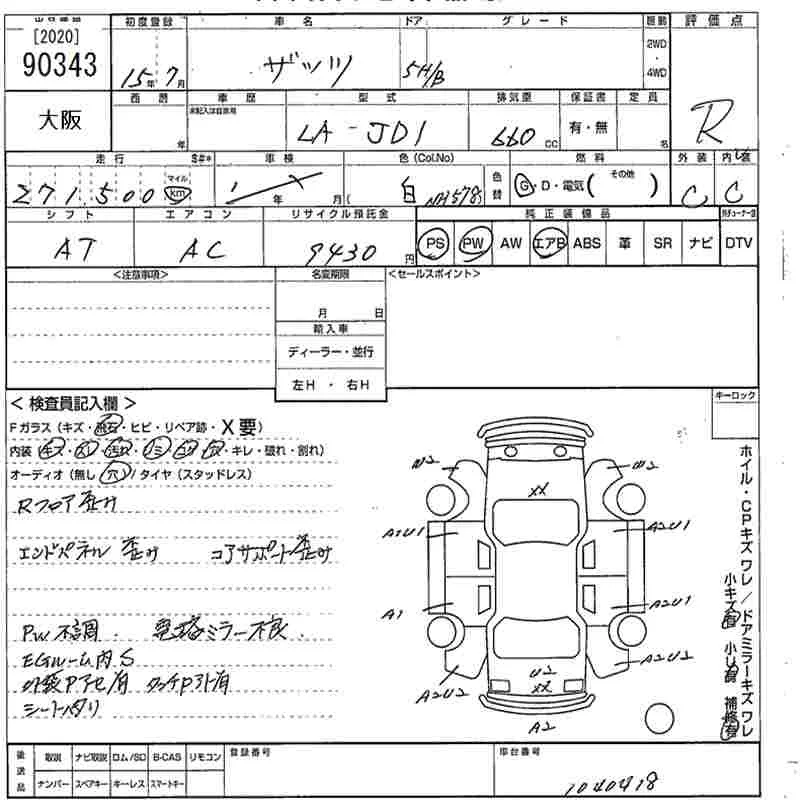 [2020]
90343
大阪
初度登録 車名 ドア グレード 駆動 評価点
15年7月 ザッツ 5H/B 2WD・4WD R
西暦 車歴 型式 排気量 保証書 定員
年 未記入は自家用 LA-JD1 660cc 有・無 名
走行 S#* 車検 色(Col.No) 色替 燃料 外装 内装
271,500 マイル km 年 月( 白 NH578) G・D・電気( その他 ) C C
シフト エアコン リサイクル預託金 純正装備品
AT AC 9430円 PS PW AW エアB ABS 革 SR ナビ DTV
<注意事項> 名変期限 <セールスポイント>
月 日
輸入車
ディーラー・並行
左H・右H
キーロック
<検査員記入欄>
Fガラス(キズ・飛石・ヒビ・リペア跡・X要)
内装 (キズ・・汚れ・・・・キレ・破れ・割れ)
オーディオ(無し・穴)/タイヤ(スタッドレス)
Rフロア歪み
エンドパネル歪み コアサポート歪み
PW不調. 電格ミラー不良.
EGルーム内S
シートヘタリ
U2 W2
XX
A2U1 A2U1
A1 A2U1
A2U2 A2U2
U2
XX
A2
ホイル・CPキズ ワレ/ドアミラーキズ ワレ
小キズ有 小U有 補修有
後送品 取説 ナビ取説 ロム/SD B-CAS リモコン 登録番号 車台番号
ナンバー スペアキー キーレス スマートキー 1040418